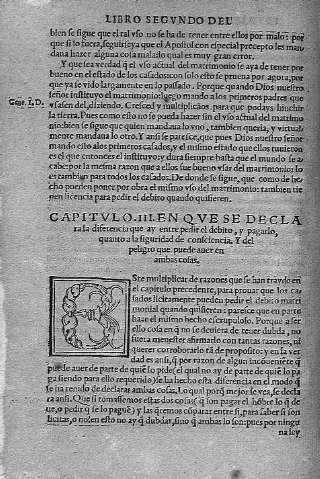 LIBRO SEGVNDO DEL
bien se sigue que el tal vso no se ha de tener entre ellos por malo: por
que si lo fuera, seguirse ya que el Apostol con especial precepto les man
dara hazer alguna cosa mala: lo qual es muy gran error.
Y que sea verdad q̃ el vso actual del matrimonio se aya de tener por
bueno en el estado de los casados: con solo esto se prueua por agora, por
que ya se vido largamente en lo passado. Porque quando Dios nuestro
señor instituyo el matrimonio: luego mando a los primeros padres que
Gene. I. D.
vsassen del, diziendo. Cresced y multiplicaos para que podays hinchir
la tierra. Pues como esto no se pueda hazer sin el vso actual del matrimo
nio: bien se sigue que quien manda vno, tambien queria, y virtual
mente mandaua lo otro. Y ansi se parece, que pues Dios nuestro Señor
mando esto a los primeros casados, y el mismo estado que ellos tuuieron
es el que entonces el instituyo: y dura siempre hasta que el mundo se a
cabe: por la mesma razon que a ellos fue bueno vsar del matrimonio: lo
es tambien para todos los casados. De donde se sigue, que como de he
cho pueden poner por obra el mismo vso del matrimonio: tambien tie
nen licencia para pedir el debito quando quisieren.
CAPITVLO. III. EN QVE SE DECLA
ra la diferencia que ay entre pedir el debito, y pagarlo,
quanto a la siguridad de consciencia. Y del
peligro que puede auer en
ambas cosas.
Este multiplicar de razones que se han traydo en
el capitulo precedente, para prouar que los ca
sados licitamente pueden pedir el debito matri
monial quando quisieren: parece que en parte
haze el mismo hecho escrupuloso. Porque a ser
ello cosa en q̃ no se deuiera de tener dubda, no
fuera menester afirmarlo con tantas razones, ni
querer corroborarlo tã de proposito: y en la ver
dad es ansi, q̃ por razon de algun incõueniẽte q̃
puede auer de parte de quiẽ lo pide (el qual no ay de parte de quiẽ lo pa
ga siendo para ello requerido) se ha hecho esta diferencia en el modo q̃
se ha tenido de declarar ambas cosas. Lo qual porq̃ mejor se vea, se decla
ra ansi. Que si tomassemos estas dos cosas (q̃ son pagar el hõbre lo q̃ de
ue, o pedir q̃ se lo paguẽ) y las q̃remos cõparar entre si, para saber si son
licitas, o no: en esto no ay q̃ dubdar, sino q̃ ambas lo son: pues por ningu
na ley